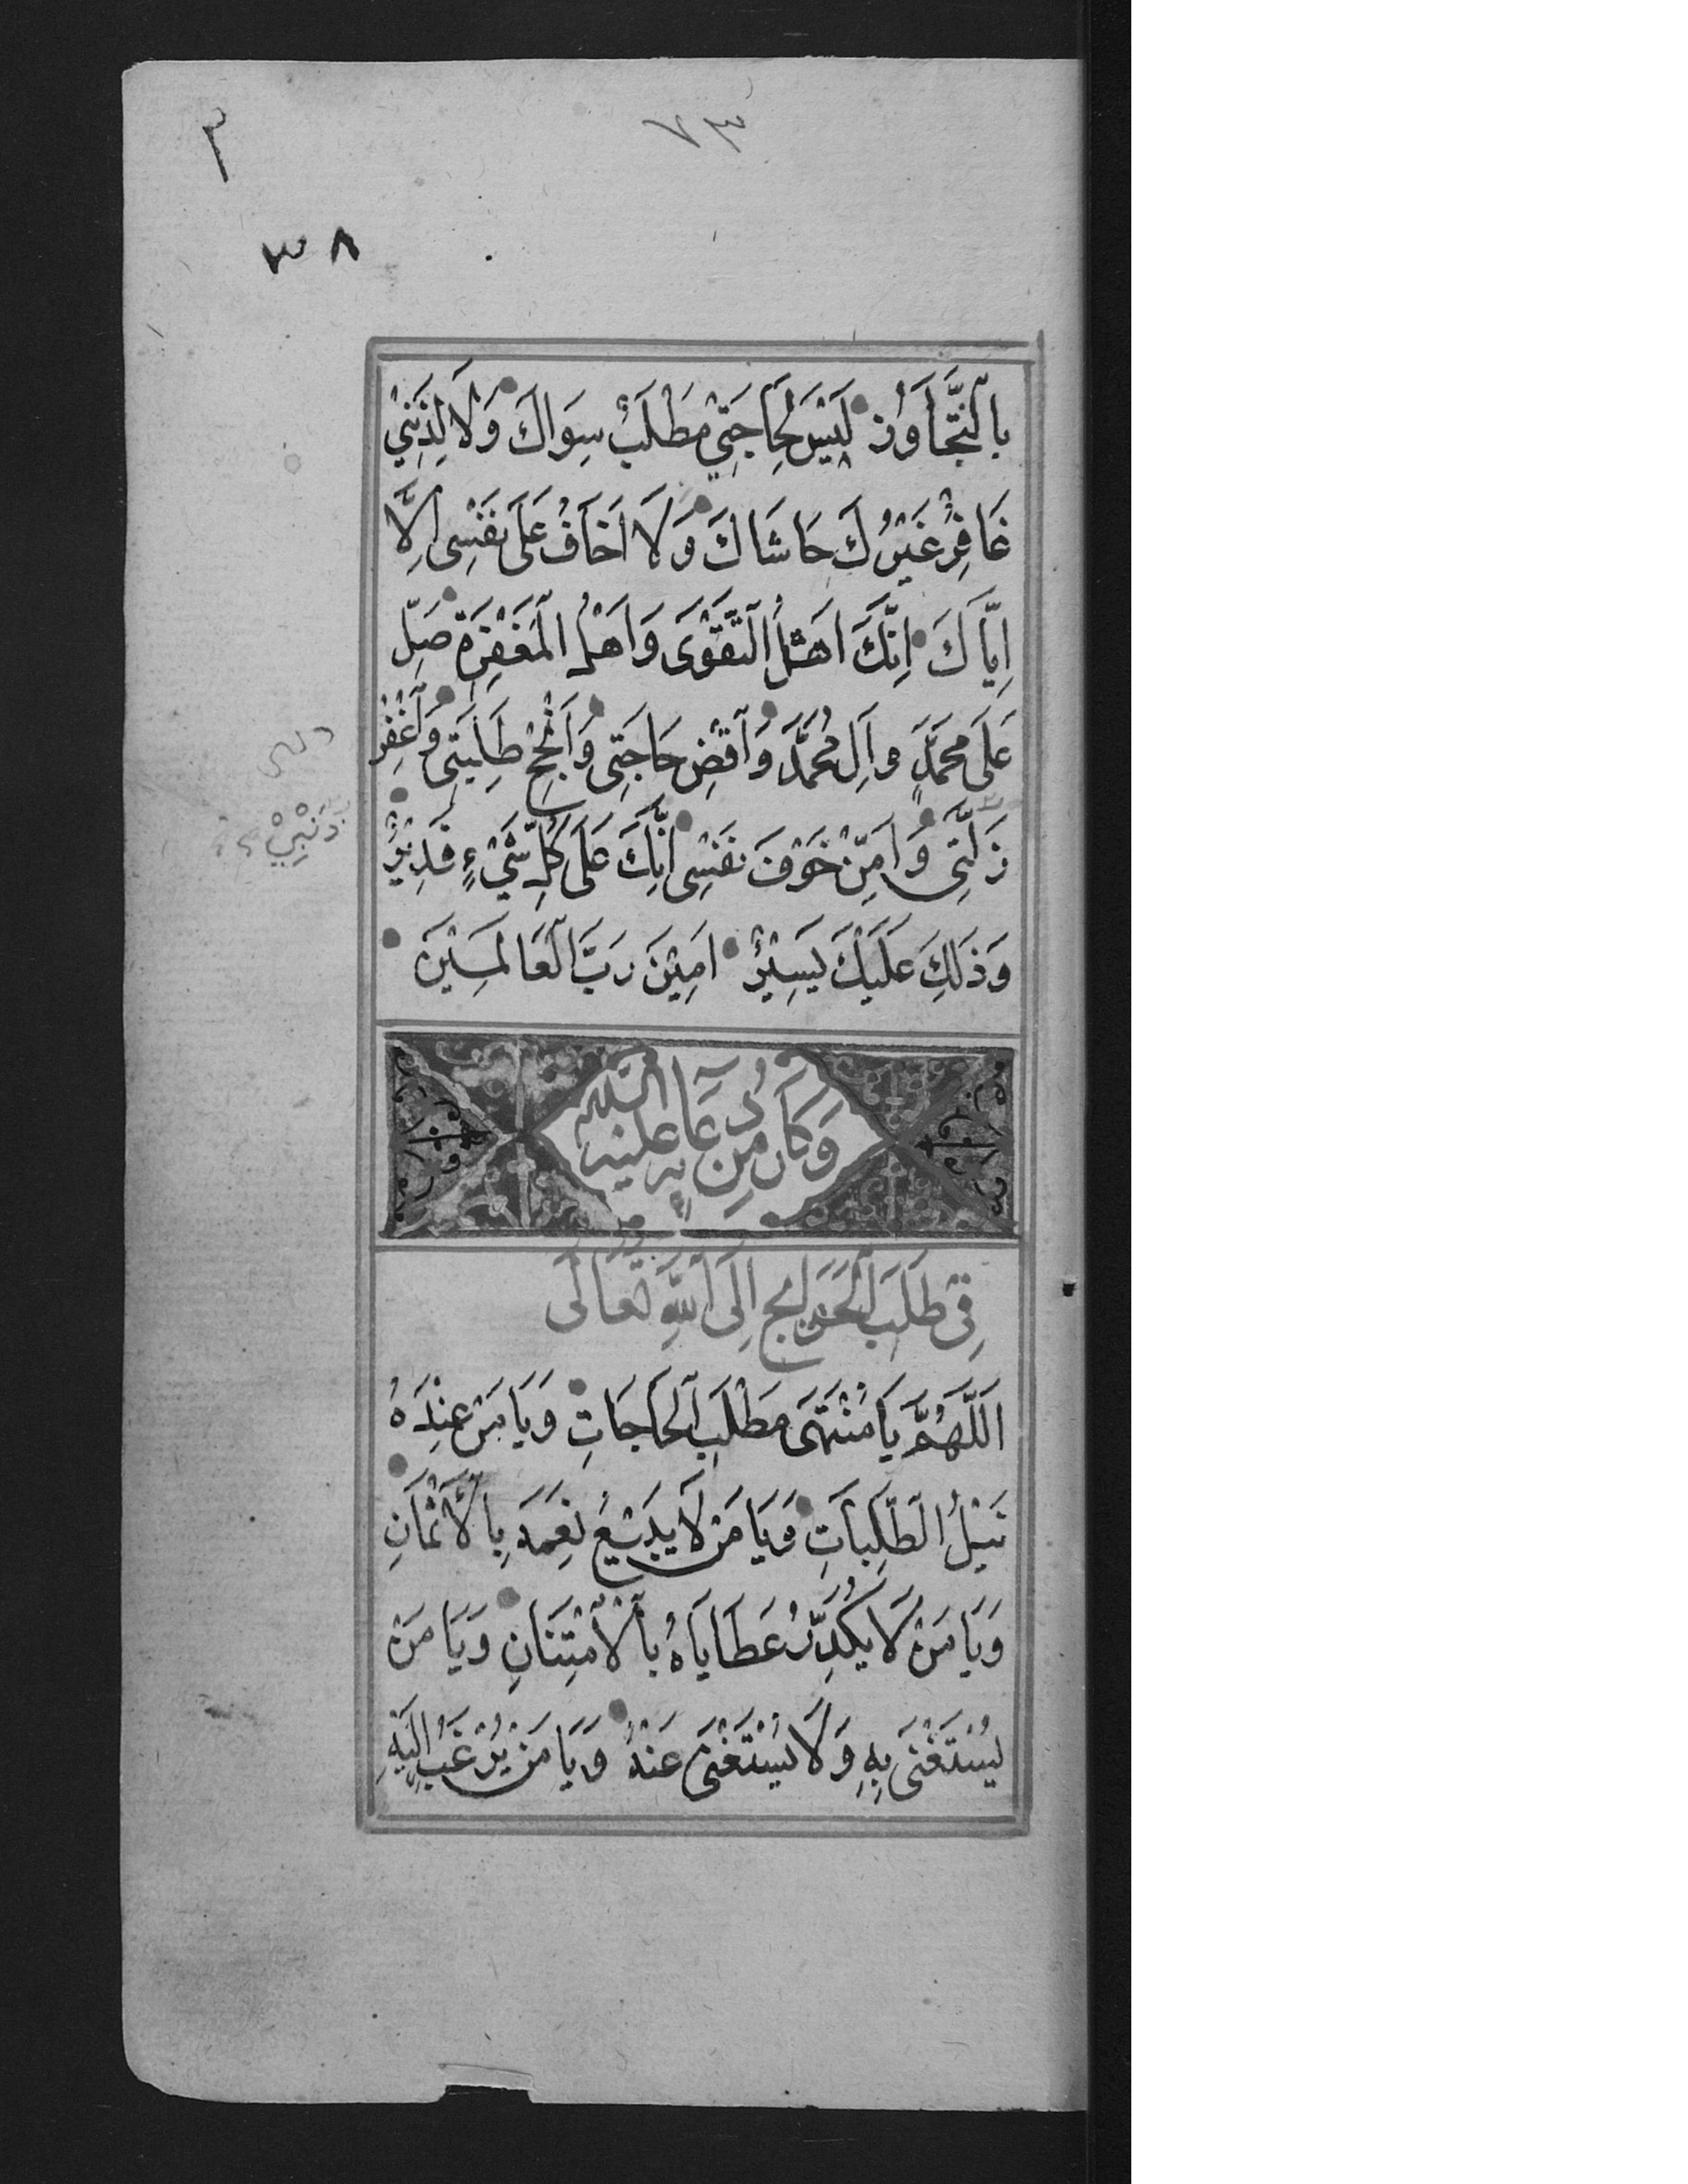 ٧٣
٣
٣٨
بِالتَّجَاوُزِ لَيْسَ لِحَاجَتِيْ مَطْلَبٌ سِوَاكَ وَلَا لِذَنْبِيْ
غَافِرٌ غَيْرُكَ حَاشَاكَ وَلَا اَخَافُ عَلَى نَفْسِى اِلَّا
اِيَّاكَ اِنَّكَ اَهْلُ التَّقْوَى وَاَهْلُ الْمَغْفِرَةِ صَلِّ
عَلَى مُحَمَّدٍ وَاٰلِ مُحَمَّدٍ وَاقْضِ حَاجَتِى وَاَنْجِحْ طَلِبَتِى وَاغْفِرْ
زَلَّتِى وَاٰمِنْ خَوْفَ نَفْسِى اِنَّكَ عَلَى كُلِّ شَيْءٍ قَدِيْرٌ
وَذٰلِكَ عَلَيْكَ يَسِيْرٌ اٰمِيْنَ رَبَّ الْعَالَمِيْنَ
وَكَانَ مِنْ دُعَائِهِ عَلَيْهِ السَّلَام
فِى طَلَبِ الْحَوَائِجِ اِلَى اللهِ تَعَالَى
اَللّٰهُمَّ يَا مُنْتَهَى مَطْلَبِ الْحَاجَاتِ وَيَا مَنْ عِنْدَهُ
نَيْلُ الطَّلِبَاتِ وَيَا مَنْ لَا يَبِيْعُ نِعَمَهُ بِالْاَثْمَانِ
وَيَا مَنْ لَا يُكَدِّرُ عَطَايَاهُ بِالْاِمْتِنَانِ وَيَا مَنْ
يُسْتَغْنَى بِهِ وَلَا يُسْتَغْنَى عَنْهُ وَيَا مَنْ يُرْغَبُ اِلَيْهِ